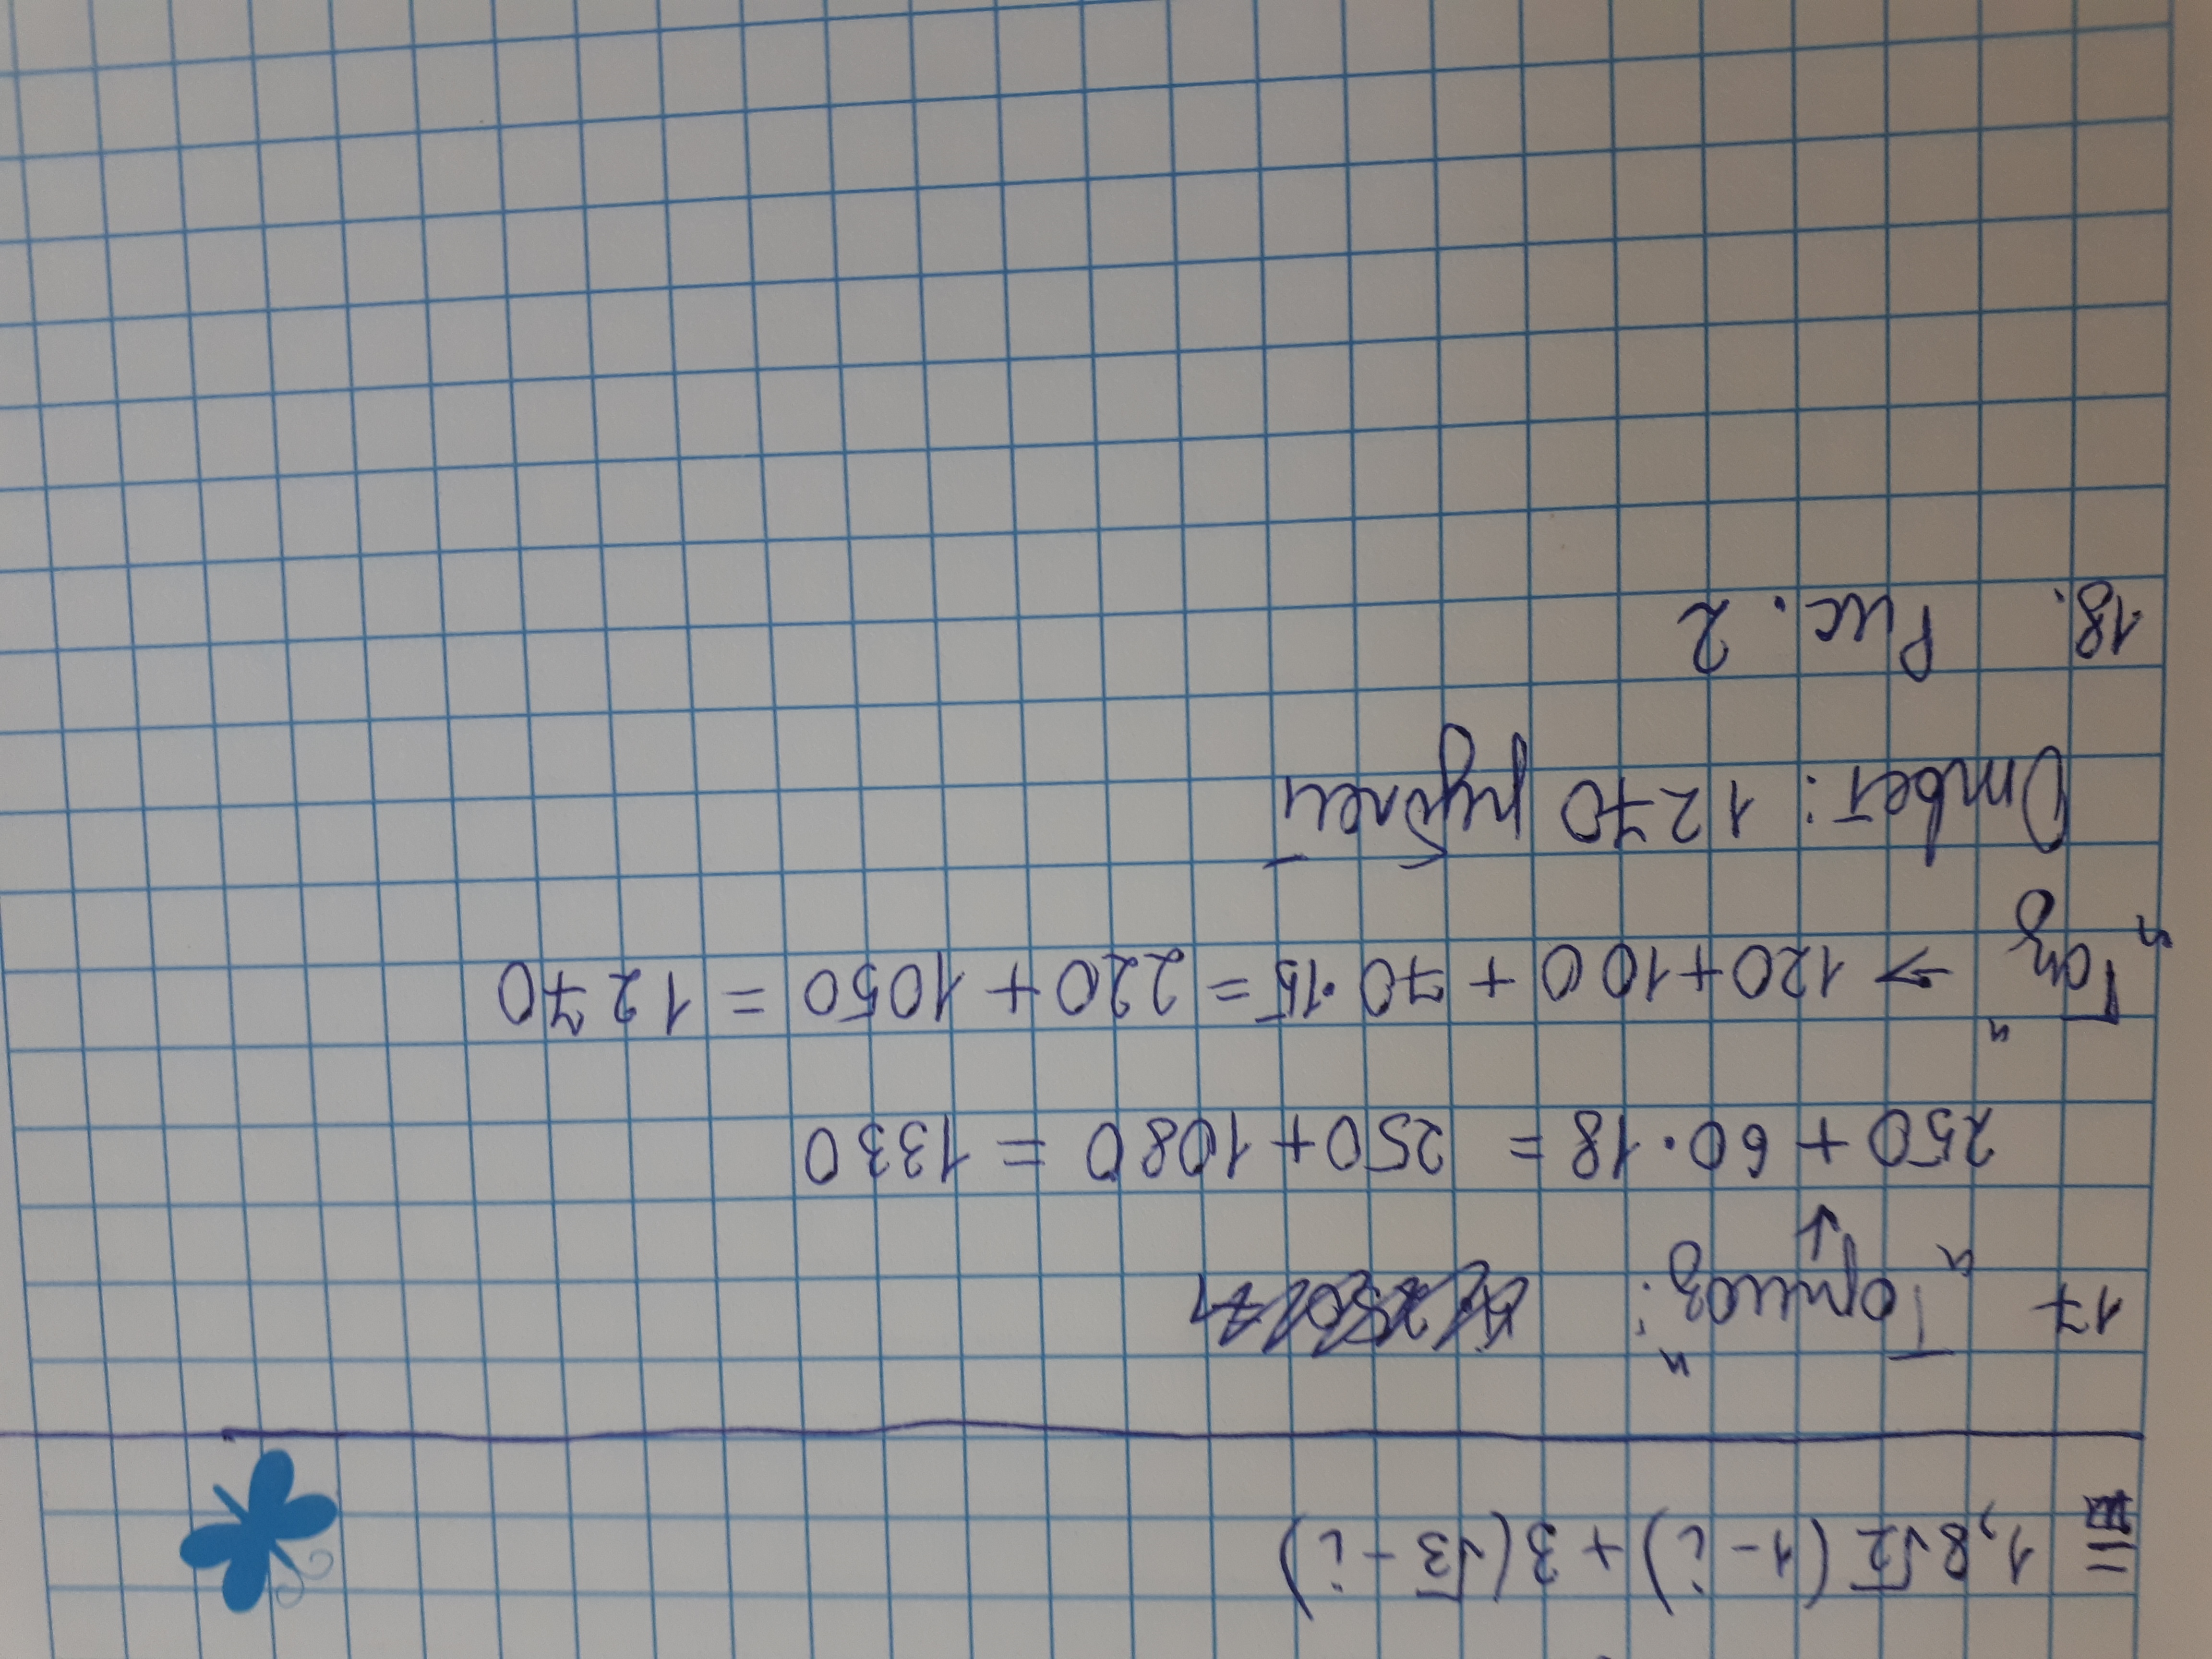 = 1,8√2 (1-i) + 3(√3 - i)
17 "Горизоз":
↓
250 + 60·18 = 250 + 1080 = 1330
"Газ" → 120+100 + 70·15 = 220 + 1050 = 1270
Ответ: 1270 рублей
18. Рис. 2